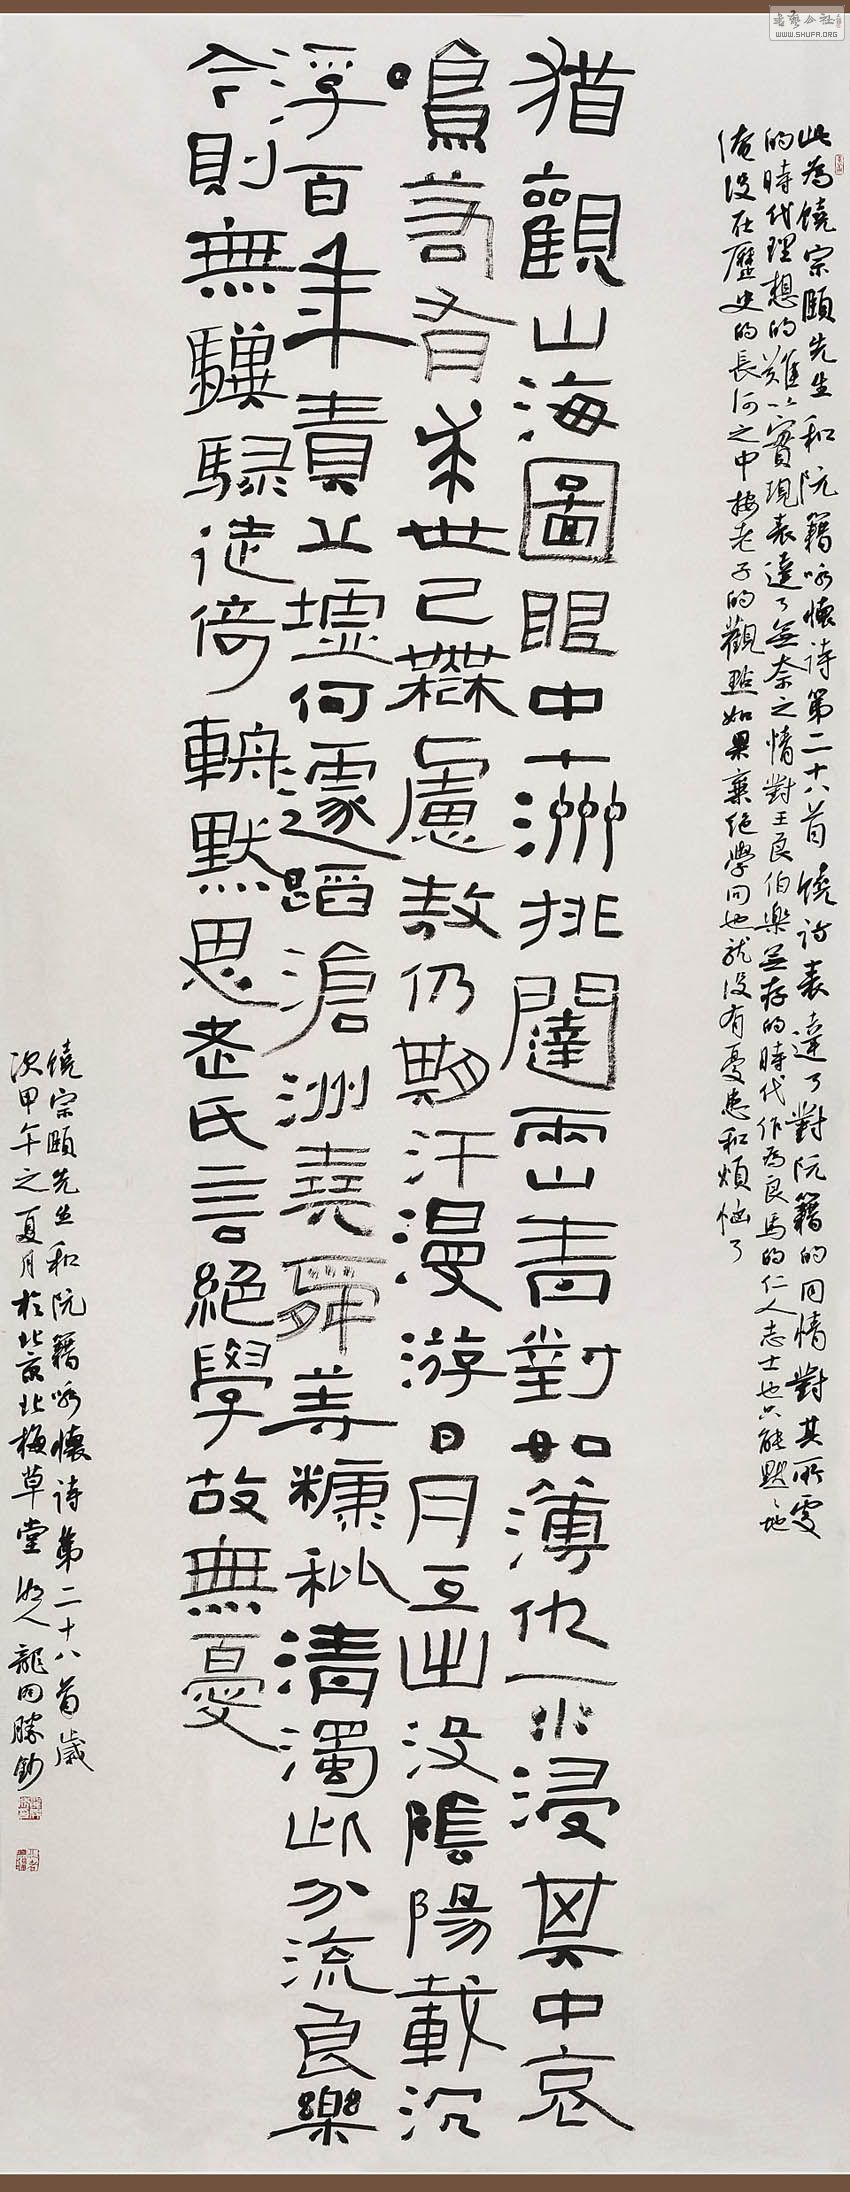 此為饒宗頤先生和阮籍咏懷诗第二十八首饒詩表達了對阮籍的同情對其所處
的時代理想的難以實現表達了無奈之情對王良伯樂並存的時代作為良馬的仁人志士也只能默默地
淹没在歷史的長河之中按老子的觀點如果棄絕學问也就没有憂患和煩惱了
猶觀山海圖眼中十洲排闥雲山青對如薄仇一水浸其中哀
鳴若有求世已無盧敖仍期汗漫游日月互出没陰陽載沉
浮百年責丘墟何遽蹈滄洲堯舜等糠秕清濁此分流良樂
今則無驥騄徒倚輈默思老氏言絕學故無憂
饒宗頤先生和阮籍咏懷诗第二十八首歲
次甲午之夏月於北京北梅草堂 湘人龍困勝鈔
書藝公社
WWW.SHUFA.ORG